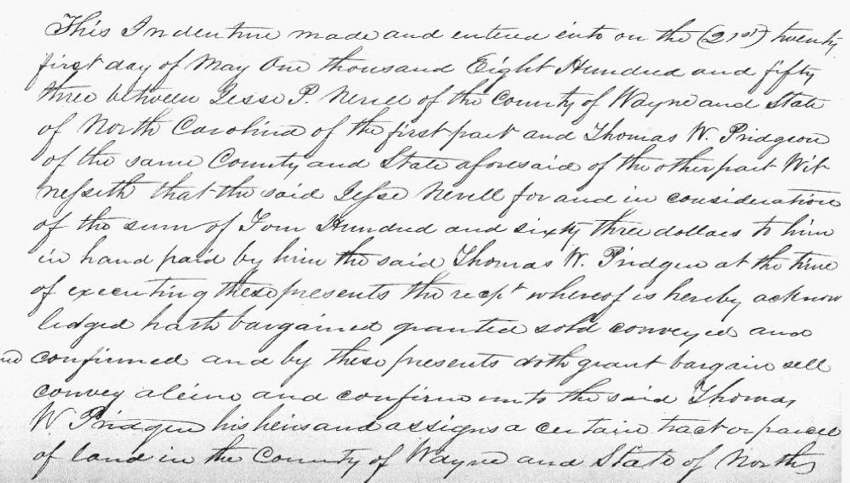 This Indenture made and entered into on the (21st) twenty
first day of May One thousand Eight Hundred and fifty
three between Jesse P. Nerell of the County of Wayne and State
of North Carolina of the first part and Thomas W. Pridgeon
of the same County and State aforesaid of the other part Wit
nesseth that the said Jesse Nerell for and in consideration
of the sum of Four Hundred and sixty three dollars to him
in hand paid by him the said Thomas W. Pridgen at the time
of executing these presents the recpt whereof is hereby acknow
ledged hath bargained granted sold conveyed and
confirmed and by these presents doth grant bargain sell
convey alein and confirm unto the said Thomas
W. Pridgen his heirs and assigns a certain tract or parcel
of land in the County of Wayne and State of North